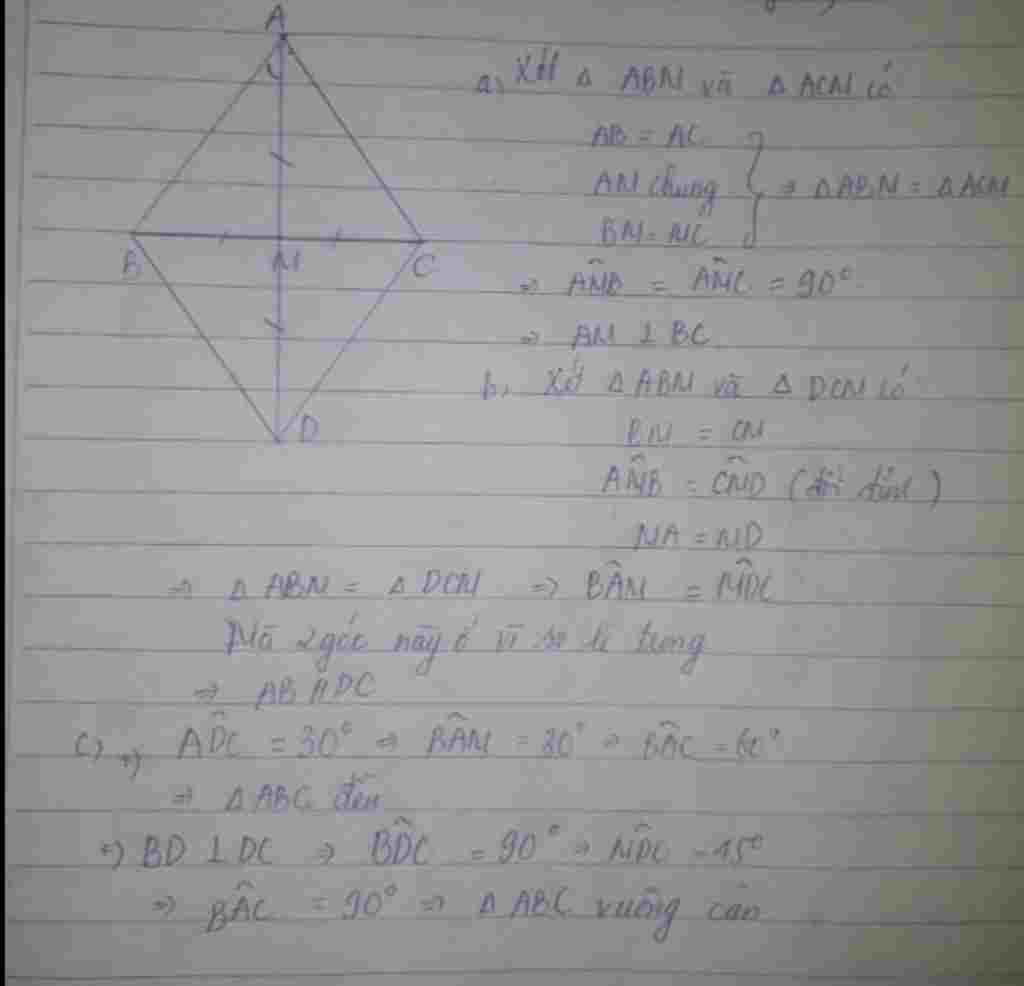 A
B
M
C
D
a, Xét Δ ABM và Δ ACM có
AB = AC
AM chung
⇒ ΔABM = ΔACM
BM = MC
⇒ AM̂B = AM̂C = 90°
⇒ AM ⊥ BC
b, Xét Δ ABM và Δ DCM có
BM = CM
AM̂B = CM̂D (đối đỉnh)
MA = MD
⇒ Δ ABM = Δ DCM ⇒ BÂM = MD̂C
Mà 2 góc này ở vị so le trong
⇒ AB // DC
c) +) AD̂C = 30° ⇒ BÂM = 30° ⇒ BÂC = 60°
⇒ Δ ABC đều
+) BD ⊥ DC ⇒ BD̂C = 90° ⇒ MD̂C = 45°
⇒ BÂC = 90° ⇒ Δ ABC vuông cân